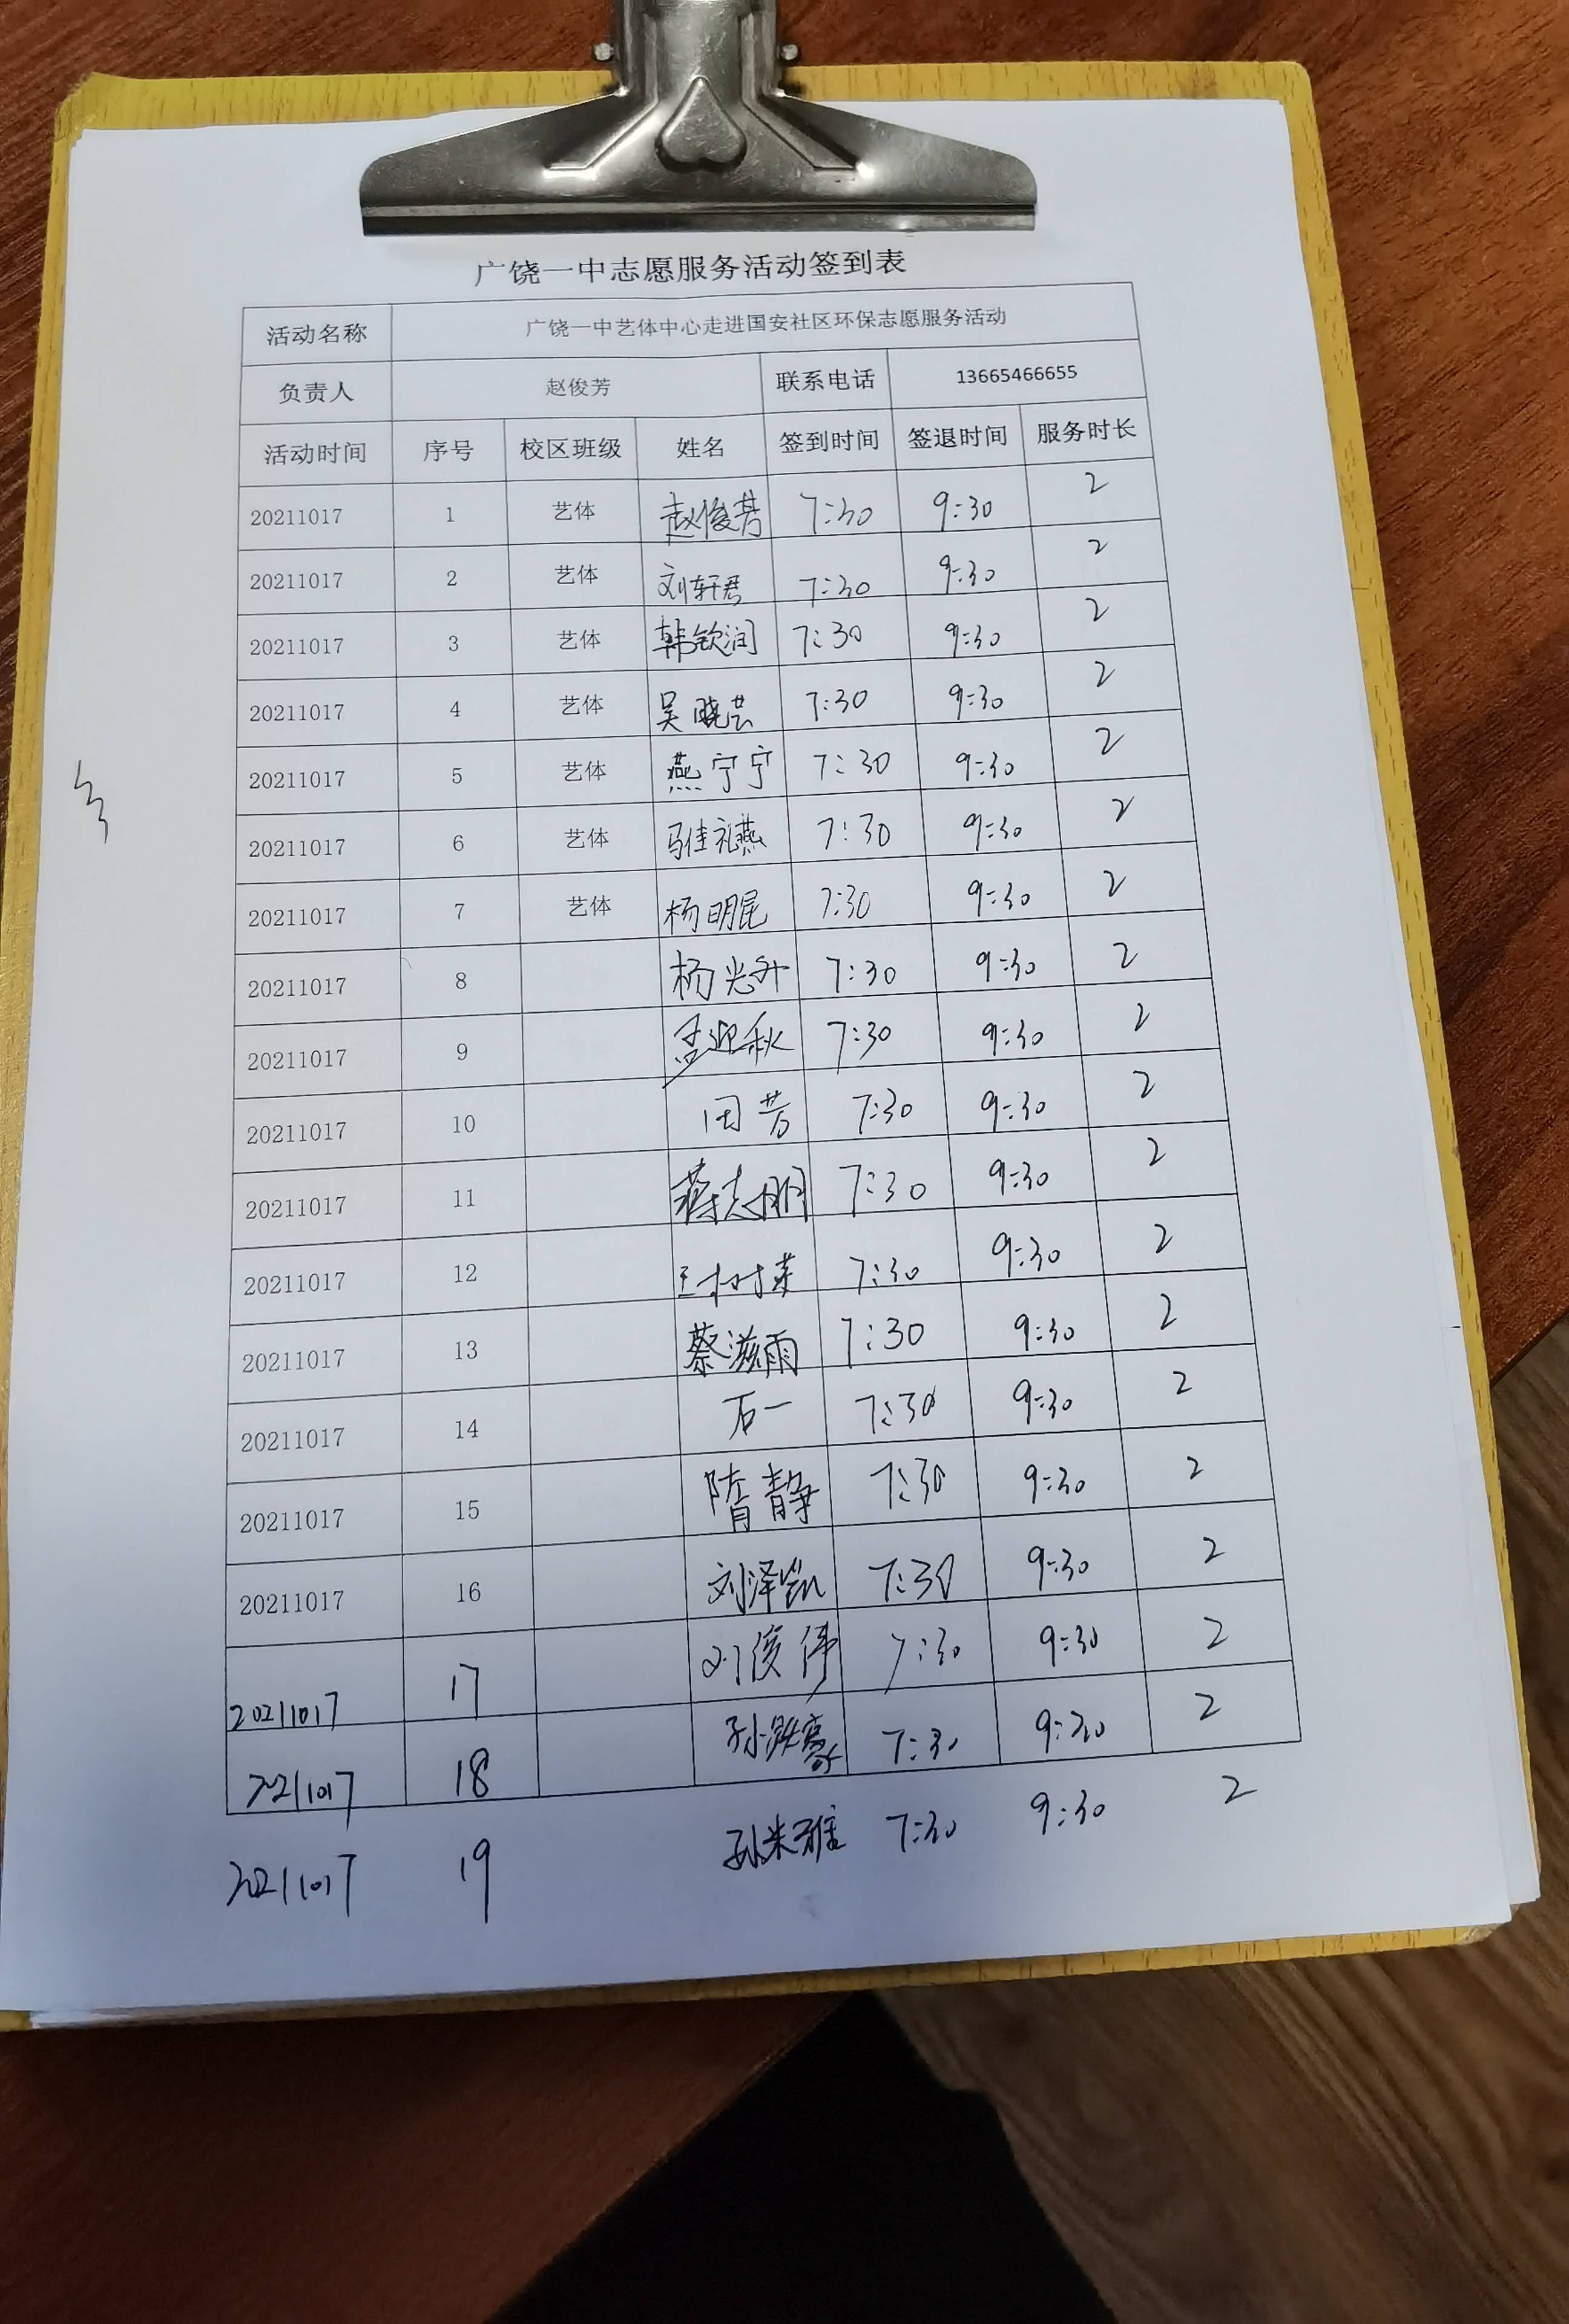 广饶一中志愿服务活动签到表
活动名称 广饶一中艺体中心走进国安社区环保志愿服务活动
负责人 赵俊芳 联系电话 13665466655
活动时间 序号 校区班级 姓名 签到时间 签退时间 服务时长
20211017 1 艺体 赵俊芳 7:30 9:30 2
20211017 2 艺体 刘轩君 7:30 9:30 2
20211017 3 艺体 韩钦润 7:30 9:30 2
20211017 4 艺体 吴晓芸 7:30 9:30 2
20211017 5 艺体 燕宁宁 7:30 9:30 2
20211017 6 艺体 马佳礼燕 7:30 9:30 2
20211017 7 艺体 杨明昆 7:30 9:30 2
20211017 8 杨光升 7:30 9:30 2
20211017 9 孟迎秋 7:30 9:30 2
20211017 10 田芳 7:30 9:30 2
20211017 11 蒋志明 7:30 9:30 2
20211017 12 7:30 9:30 2
20211017 13 蔡滋雨 7:30 9:30 2
20211017 14 石一 7:30 9:30 2
20211017 15 隋静 7:30 9:30 2
20211017 16 刘泽凯 7:30 9:30 2
20211017 17 刘俊伟 7:30 9:30 2
2021017 18 7:30 9:30 2
2021017 19 孙米雅 7:30 9:30 2